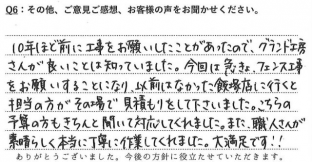 Q6：その他、ご意見ご感想、お客様の声をお聞かせください。
10年ほど前に工事をお願いしたことがあったので、グランド工房
さんが良いことは知っていました。今回は急きょ、フェンス工事
をお願いすることになり、以前はなかった飯塚店に行くと
担当の方がその場で見積もりをして下さいました。こちらの
予算の方もきちんと聞いて対応してくれました。また、職人さんが
素晴らしく本当に丁寧に作業してくれました。大満足です!!
ありがとうございました。今後の方針に役立たせていただきます。